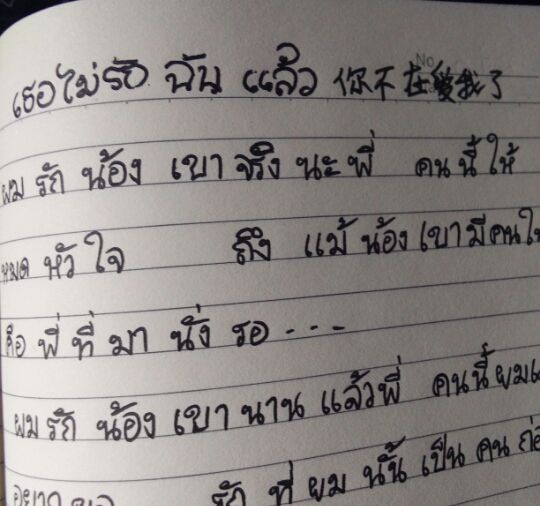 เธอไม่รัก ฉัน แล้ว 你不在爱我了
No
ผม รัก น้อง เขา จริง นะ พี่ คน นี้ ให้
หมด หัว ใจ ถึง แม้ น้อง เขา มี คน
คือ พี่ ที่ มา นั่ง รอ ---
ผม รัก น้อง เขา นาน แล้ว พี่ คน นี้ ผม
รัก ที่ ผม นั้น เป็น คน